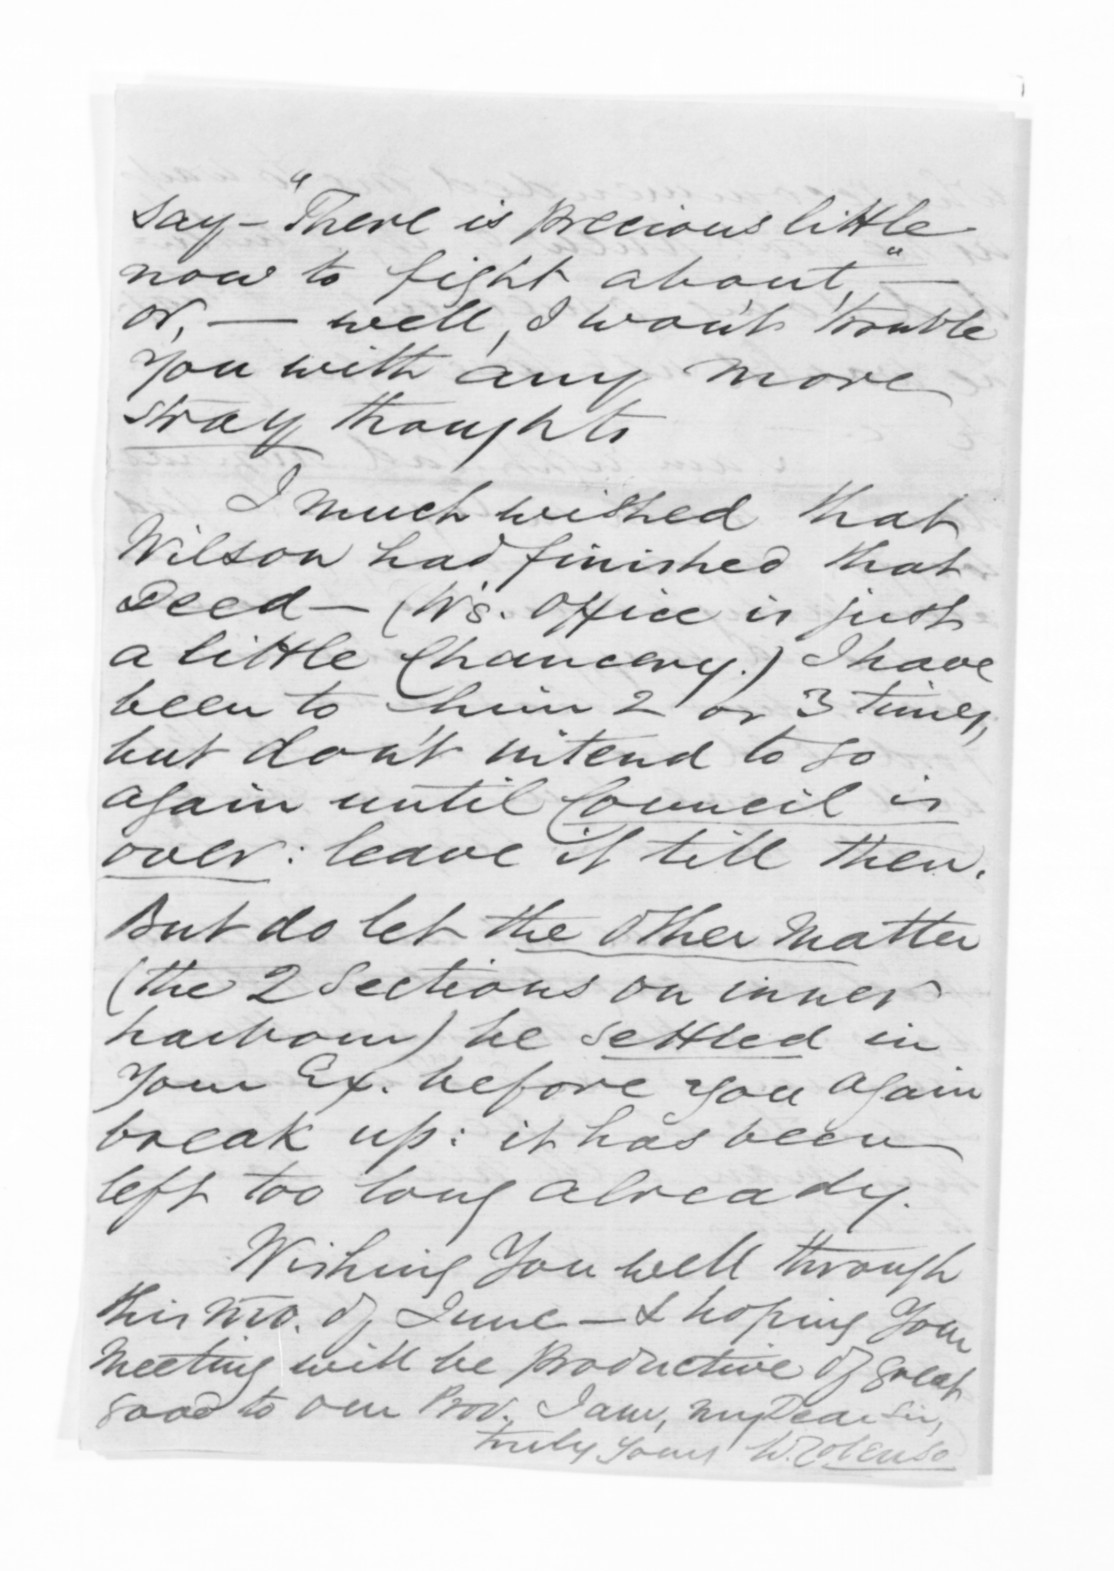 say – "There is precious little
now to fight about," –
or, — well, I won't trouble
you with any more
stray thoughts
I much wished that
Wilson had finished that
Deed – (W's. Office is just
a little Chancery.) I have
been to him 2 or 3 times,
but don't intend to go
again until Council is
over: leave it till then.
But do let the other matter
(the 2 Sections on inner
harbour) be settled in
Your Ex. before you again
break up: it has been
left too long already.
Wishing You well through
this mo. of June – & hoping Your
Meeting will be productive of great
good to our Prov. I am, my Dear Sir,
truly yours W. Colenso